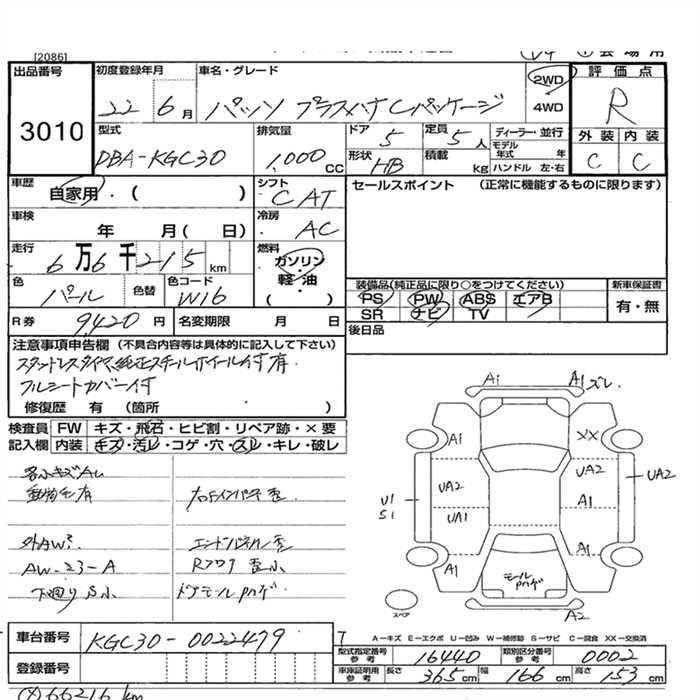 [2086]
出品番号
3010
初度登録年月
22 6月
車名・グレード
パッソ プラスハナCパッケージ
2WD
4WD
評価点
R
外装 内装
C C
型式
DBA-KGC30
排気量
1,000 CC
ドア 5
定員 5人
形状 HB
積載 kg
ディーラー・並行
モデル年式 年
ハンドル 左・右
車歴
自家用・( )
シフト
C AT
セールスポイント (正常に機能するものに限ります)
車検
年 月( 日)
冷房
AC
走行
6万6千215km
燃料
ガソリン
軽・油
( )
色
パール
色替
色コード
W16
装備品(純正品に限り○をつけてください)
新車保証書
PS PW ABS エアB
SR ナビ TV
有・無
R券 9,420円
名変期限 月 日
後日品
注意事項申告欄 (不具合内容等は具体的に記入して下さい)
スタットレスタイヤ、純正スチールホイール付有
フルシートカバー付
修復歴 有 (箇所 )
検査員記入欄
FW キズ・飛石・ヒビ割・リペア跡・×要
内装 キズ・汚レ・コゲ・穴・スレ・キレ・破レ
外AWキ
AW-23-A
下廻りS小
エンドパネル歪
Rフロア歪小
ドアモールPハゲ
A1 A1 ズレ
A1 XX
UA2 UA2
UA2
U1
S1
UA1 A1
A1 A1
モールPハゲ
A2
スペア
A-キズ E-エクボ U-凹み W-補修跡 S-サビ C-腐食 XX-交換済
車台番号
KGC30-0022479
登録番号
型式指定番号 参考 16440
類別区分番号 参考 0002
車庫証明用 参考 長さ 365cm 幅 166cm 高さ 153cm
(×66216km